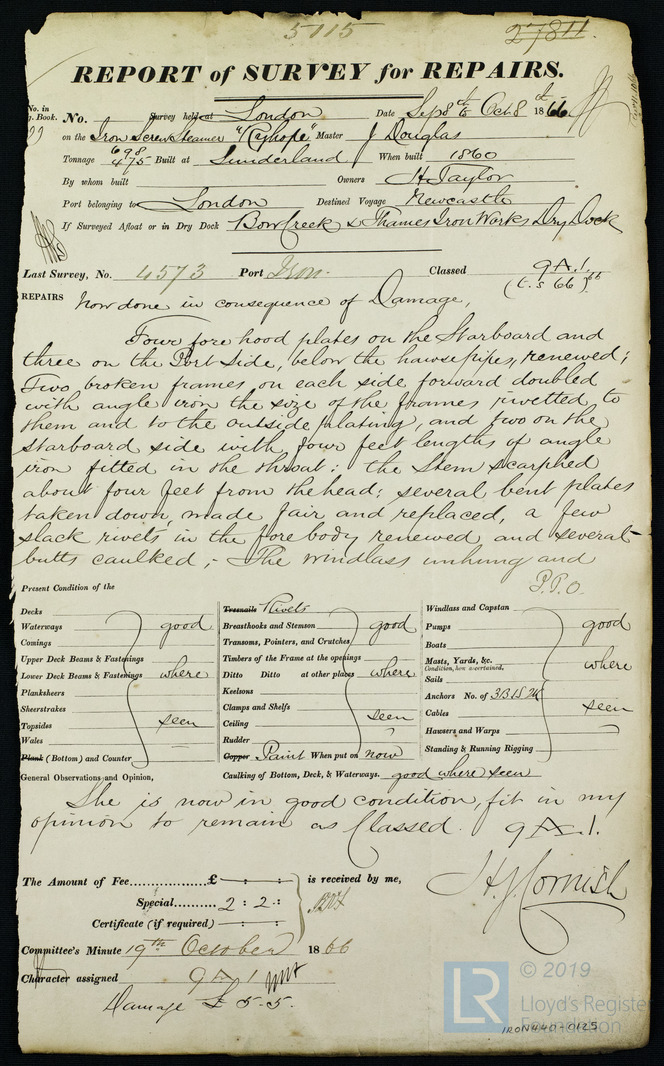 5115
27811.
REPORT of SURVEY for REPAIRS.
No. in
g. Book. No. Survey held at London Date Sep 8th to Oct 8th 1866
on the Iron Screw Steamer "Ryhope" Master J Douglas
Tonnage 698 475 Built at Sunderland When built 1860
By whom built Owners H. Taylor
Port belonging to London Destined Voyage Newcastle
If Surveyed Afloat or in Dry Dock Bow Creek & Thames Iron Works Dry Dock
Last Survey, No. 4573 Port Iron. Classed 9 A.1.
(t.s 66)
REPAIRS Now done in consequence of Damage,
Four fore hood plates on the Starboard and
three on the Port Side, below the hawsepipes, renewed;
Two broken frames on each side forward doubled
with angle iron the size of the frames rivetted to
them and to the outside plating, and two on the
starboard side with four feet lengths of angle
iron fitted in the throat; the Stem scarphed
about four feet from the head; several bent plates
taken down, made fair and replaced, a few
slack rivets in the fore body renewed and several
butts caulked,- The windlass unhung and
P.T.O.
Present Condition of the
Decks
Waterways good
Comings
Upper Deck Beams & Fastenings
Lower Deck Beams & Fastenings where
Planksheers
Sheerstrakes
Topsides seen
Wales
Plank (Bottom) and Counter
Treenails Rivets
Breasthooks and Stemson good
Transoms, Pointers, and Crutches
Timbers of the Frame at the openings
Ditto Ditto at other places where
Keelsons
Clamps and Shelfs
Ceiling seen
Rudder
Copper Paint When put on now
Windlass and Capstan
Pumps good
Boats
Masts, Yards, &c. where
Condition, how ascertained.
Sails
Anchors No. of 3B 1S 2K
Cables seen
Hawsers and Warps
Standing & Running Rigging
General Observations and Opinion, Caulking of Bottom, Deck, & Waterways. good where seen
She is now in good condition, fit in my
opinion to remain as Classed. 9 A.1.
The Amount of Fee............... £ is received by me,
Special......... 2 : 2 :
H.J. Cornish
Certificate (if required)
Committee's Minute 19th October 1866
Character assigned 9 A 1
Damage £ 5-5.
LR
© 2019
Lloyd's Register
Foundation
IRON440-0125